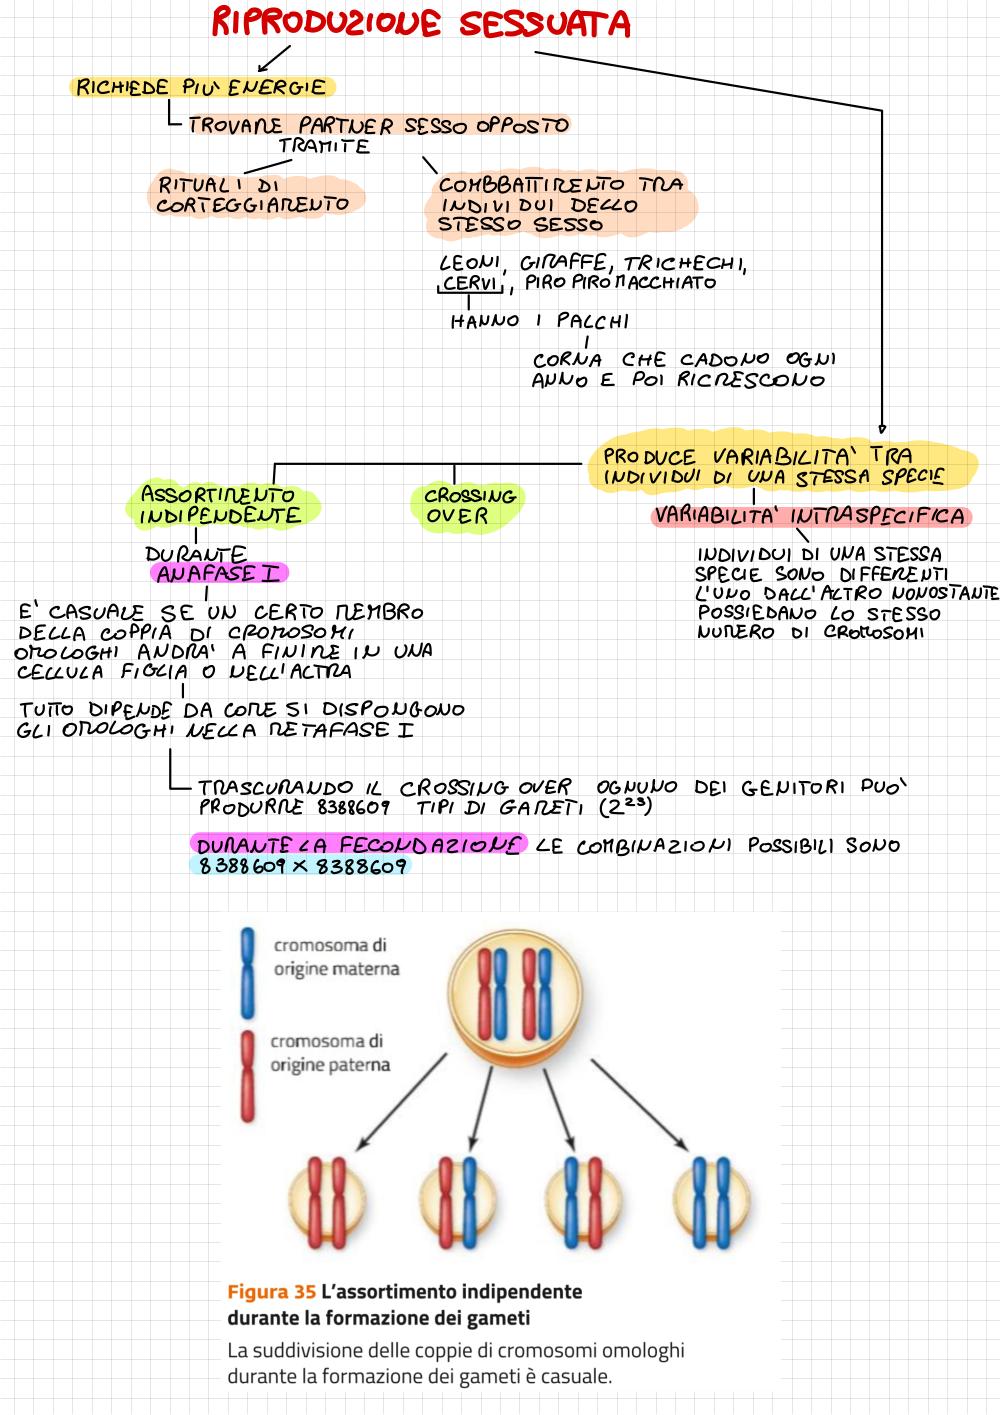 RIPRODUZIONE SESSUATA
RICHIEDE PIU' ENERGIE
TROVARE PARTNER SESSO OPPOSTO
TRAMITE
RITUALI DI
CORTEGGIAMENTO
COMBBATTIMENTO TRA
INDIVIDUI DELLO
STESSO SESSO
LEONI, GIRAFFE, TRICHECHI,
CERVI, PIRO PIRO MACCHIATO
HANNO I PALCHI
CORNA CHE CADONO OGNI
ANNO E POI RICRESCONO
PRODUCE VARIABILITA' TRA
INDIVIDUI DI UNA STESSA SPECIE
VARIABILITA' INTRASPECIFICA
INDIVIDUI DI UNA STESSA
SPECIE SONO DIFFERENTI
L'UNO DALL'ALTRO NONOSTANTE
POSSIEDANO LO STESSO
NUMERO DI CROMOSOMI
ASSORTIMENTO
INDIPENDENTE
CROSSING
OVER
DURANTE
ANAFASE I
E' CASUALE SE UN CERTO MEMBRO
DELLA COPPIA DI CROMOSOMI
OMOLOGHI ANDRA' A FINIRE IN UNA
CELLULA FIGLIA O NELL'ALTRA
TUTTO DIPENDE DA COME SI DISPONGONO
GLI OMOLOGHI NELLA METAFASE I
TRASCURANDO IL CROSSING OVER OGNUNO DEI GENITORI PUO'
PRODURRE 8388609 TIPI DI GAMETI (2²³)
DURANTE LA FECONDAZIONE LE COMBINAZIONI POSSIBILI SONO
8388609 X 8388609
cromosoma di
origine materna
cromosoma di
origine paterna
Figura 35 L'assortimento indipendente
durante la formazione dei gameti
La suddivisione delle coppie di cromosomi omologhi
durante la formazione dei gameti è casuale.